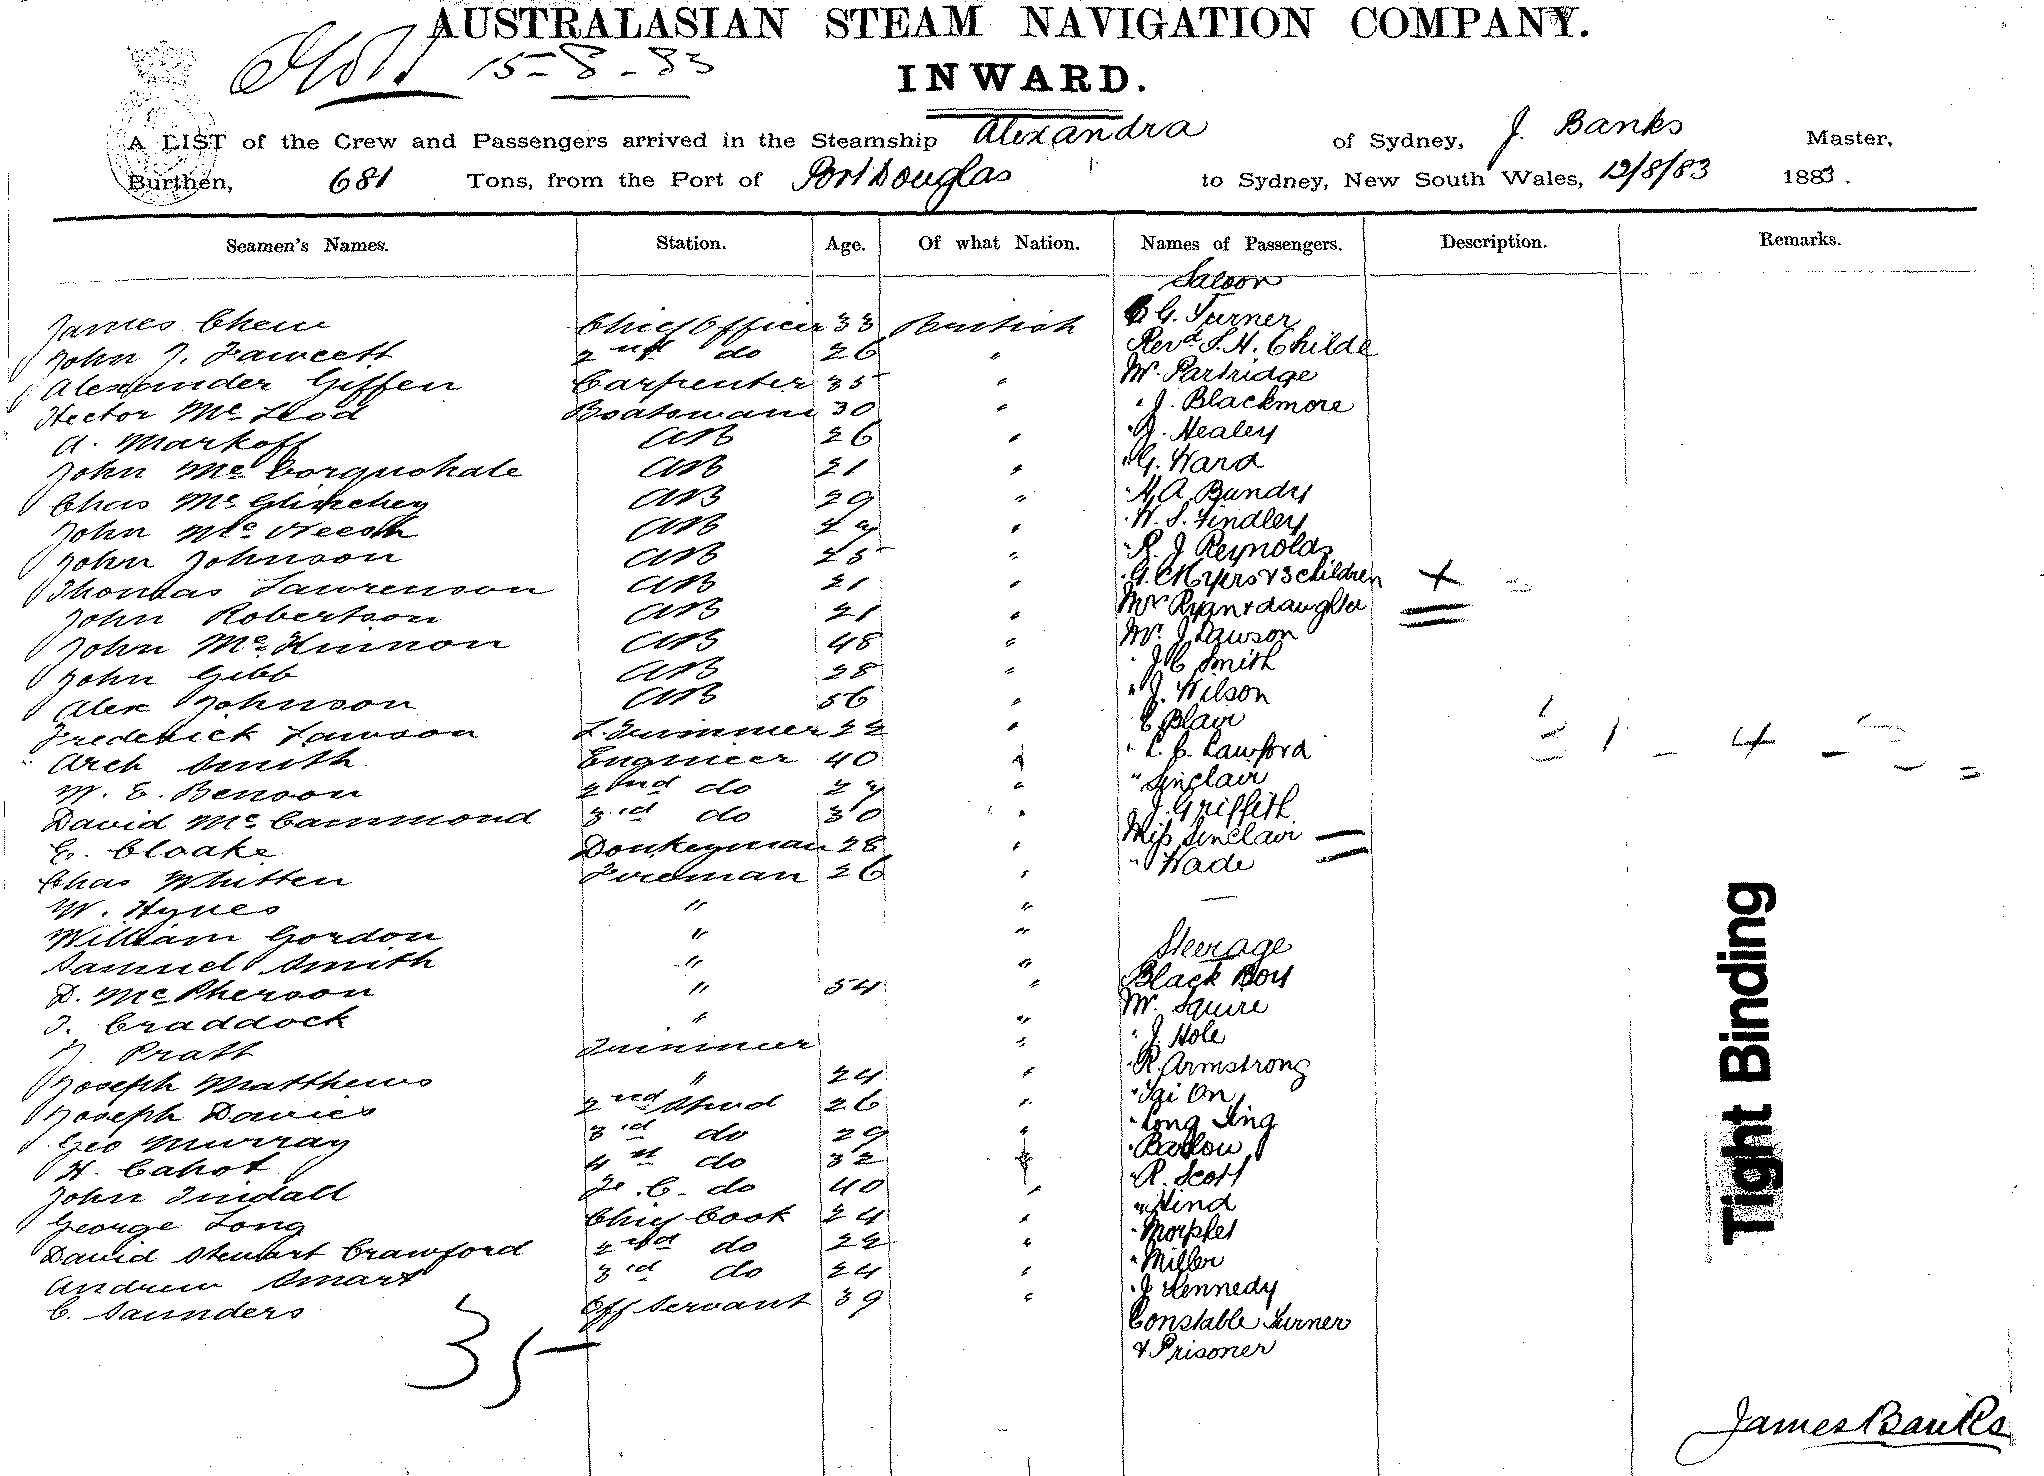 AUSTRALASIAN STEAM NAVIGATION COMPANY.
15-8-83
INWARD.
A LIST of the Crew and Passengers arrived in the Steamship Alexandra of Sydney, J. Banks Master,
Burthen, 681 Tons, from the Port of Port Douglas to Sydney, New South Wales, 12/8/83 1883.
Seamen's Names. Station. Age. Of what Nation. Names of Passengers. Description. Remarks.
Saloon
James Chew Chief Officer 33 British G. Turner
John J. Fawcett 2nd do 26 " Revd. S. H. Childe
Alexander Giffen Carpenter 35 " Mr. Partridge
Hector Mc Leod Boatswain 30 " " J. Blackmore
A. Markoff AB 26 " " J. Healey
John Mc Corquohale AB 21 " " G. Ward
Chas Mc Glinchey AB 29 " " H. A. Bundy
John Mc AB " " W. S. Findley
John Johnson AB 25 " " R. J. Reynolds
Thomas Lawrenson AB 21 " " G. C. Myers & 3 children +
John Robertson AB 21 " Mrs Ryan & daughter
John Mc Kinnon AB 48 " Mr. J. Dawson
John Gibb AB 28 " " J. C. Smith
Alex Johnson AB 56 " " J. Wilson
Frederick Lawson L. Trimmer 22 " E. Blair
Arch Smith Engineer 40 " " L. E. Lawford
W. E. Benson 2nd do 27 " " Sinclair
David Mc Cammond 3rd do 30 " " J. Griffith
G. Cloake Donkeyman 28 " Miss Sinclair
Chas Whitten Fireman 26 " " Wade
W. Hynes " "
William Gordon " " Steerage
Samuel Smith " " Black Boy
D. Mc Pherson " 54 " Mr. Squire
T. Craddock " " " J. Hole
J. Pratt Trimmer " " R. Armstrong
Joseph Matthews " 24 " " Tai On
Joseph Davies 2nd Stwd 26 " " Long Sing
Geo Murray 3rd do 29 " " Barlow
H. Cahot 4th do 32 " " R. Scott
John Tindall do 40 " " Hind
George Long Chief Cook 24 " " Morphet
David Stewart Crawford 2nd do 22 " " Miller
Andrew Smart 3rd do 24 " " J. Kennedy
C. Saunders Off Servant 39 " Constable Turner
& Prisoner
35
Tight Binding
James Banks